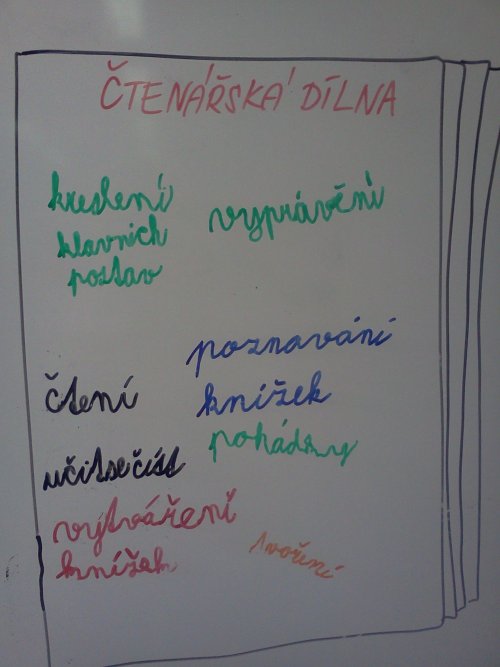 ČTENÁŘSKÁ DÍLNA
kreslení
hlavních
postav
vyprávění
poznávání
knížek
čtení
pohádky
učitsečíst
vytváření
knížek
tvoření